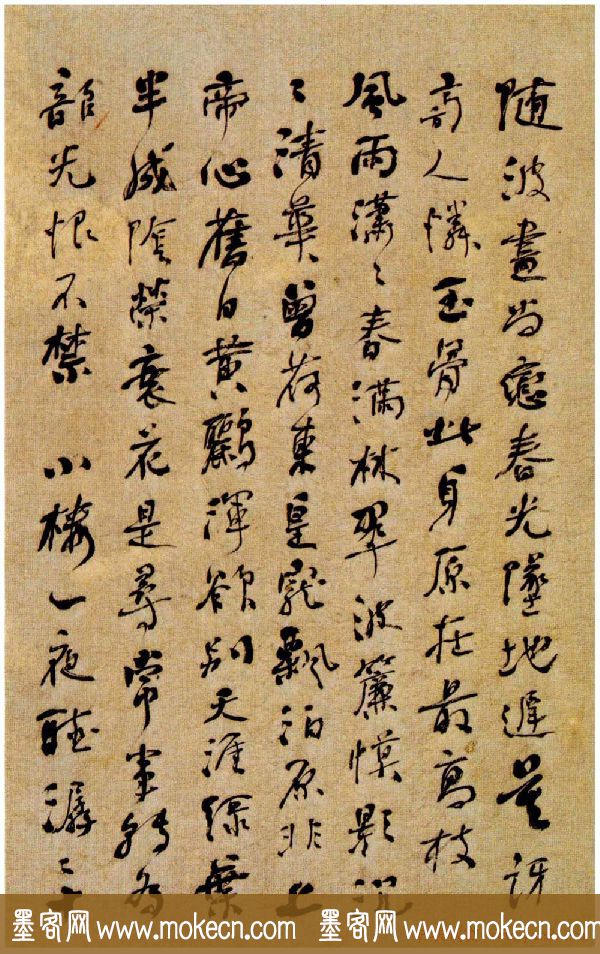 隨波盡尚戀春光墜地遲莫訝
旁人憐玉骨此身原在最高枝
風雨瀟〻春滿林翠波簾幙影沉
〻清華曾荷東皇寵飄泊原非上
帝心舊日黃鸝渾欲別天涯綠葉
半成陰榮衰花是尋常事轉為
韶光恨不禁 小樓一夜聽潺〻十
墨客网 www.mokecn.com 墨客网 www.mokecn.com